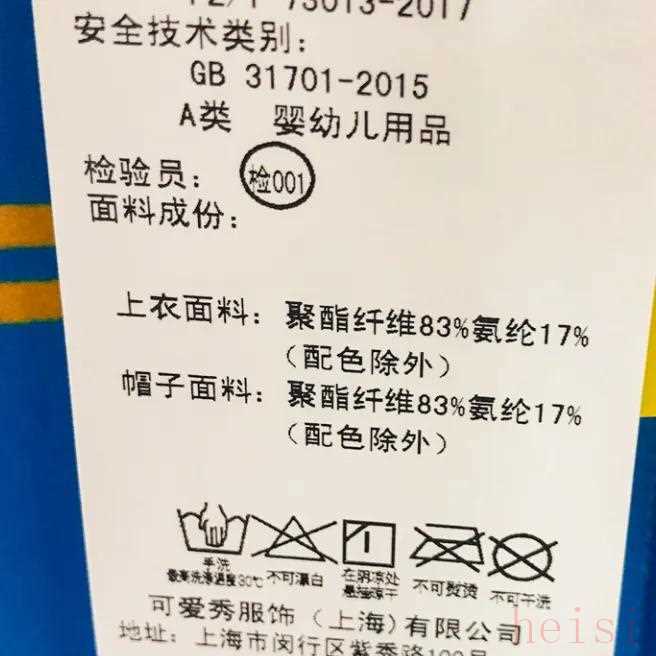 FZ/T 73013-2017
安全技术类别：
GB 31701-2015
A类 婴幼儿用品
检验员： 检001
面料成份：
上衣面料：聚酯纤维83%氨纶17%
（配色除外）
帽子面料：聚酯纤维83%氨纶17%
（配色除外）
手洗 最高洗涤温度30℃
不可漂白
在阴凉处 悬挂晾干
不可熨烫
不可干洗
可爱秀服饰（上海）有限公司
地址：上海市闵行区紫秀路100号
heisi